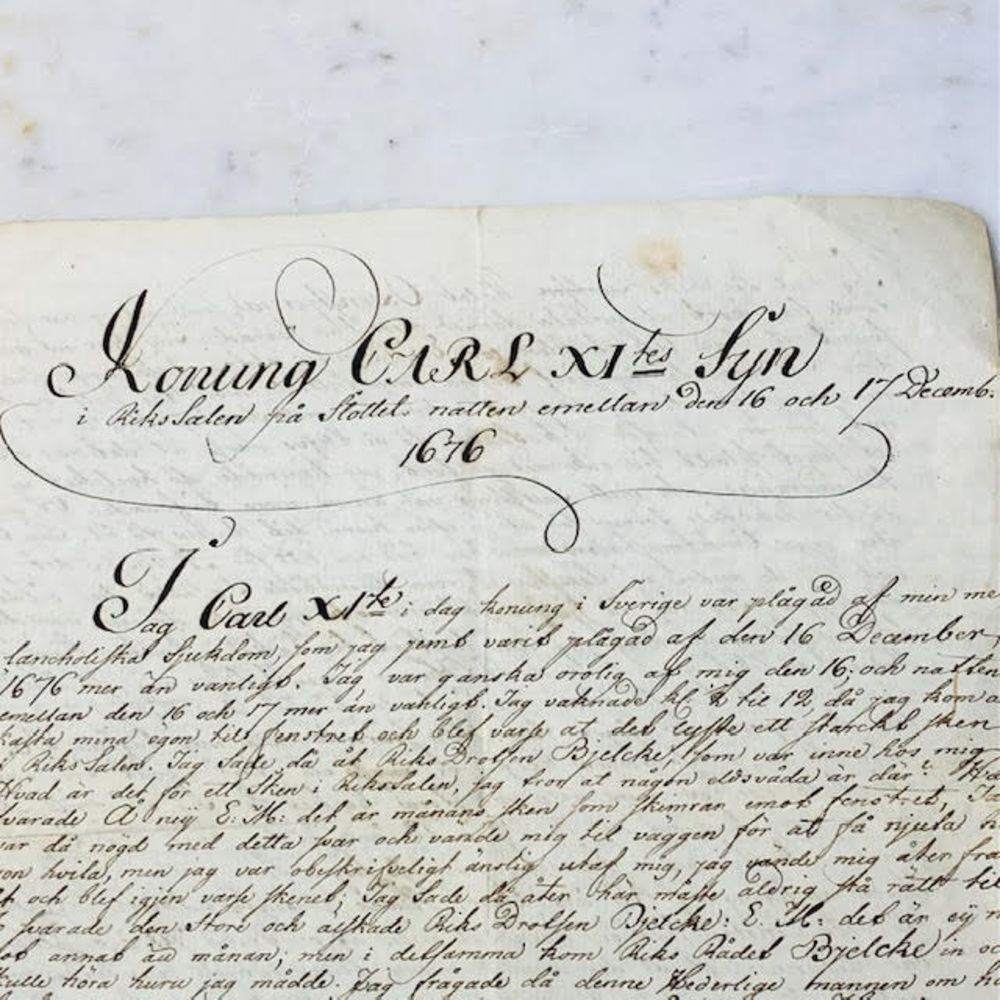 Konung CARL XItes Syn
i Riks Salen på Slottet, natten emellan den 16 och 17 Decemb.
1676
Jag Carl XIte i dag konung i Sverige var plågad af min me
lancholiska Sjukdom, som jag jemt varit plågad af den 16 December
1676 mer än vanligt. Jag var ganska orolig af mig den 16: och natten
emellan den 16 och 17 mer än vanligt. Jag vaknade kl. til 12, då jag kom a
kasta mina ögon til fenstret och blef varse at det lyste ett starckt sken
i Riks Salen. Jag Sade då åt Riks Drotsen Bjelcke, som var inne hos mig
Hvad är det för ett Sken i RiksSalen, jag tror at någon eldsvåda är där:
svarade Å nej E: M: det är månans sken som skimrar emot fenstret, Ja
var då nögd med detta svar och vände mig til väggen för at få njuta n
on hvila, men jag var obeskrifveligt änslig utaf mig, jag vände mig åter fra
t och blef igjen varse skenet; Jag Sade då åter här måste aldrig stå rätt til
svarade den Store och älskade Riks Drotsen Bjelcke: E. M: det är ej n
ot annat än månan; men i detsamma kom Riks Rådet Bjelcke in oc
skulle höra huru jag mådde. Jag frågade då denne Hederlige mannen om h